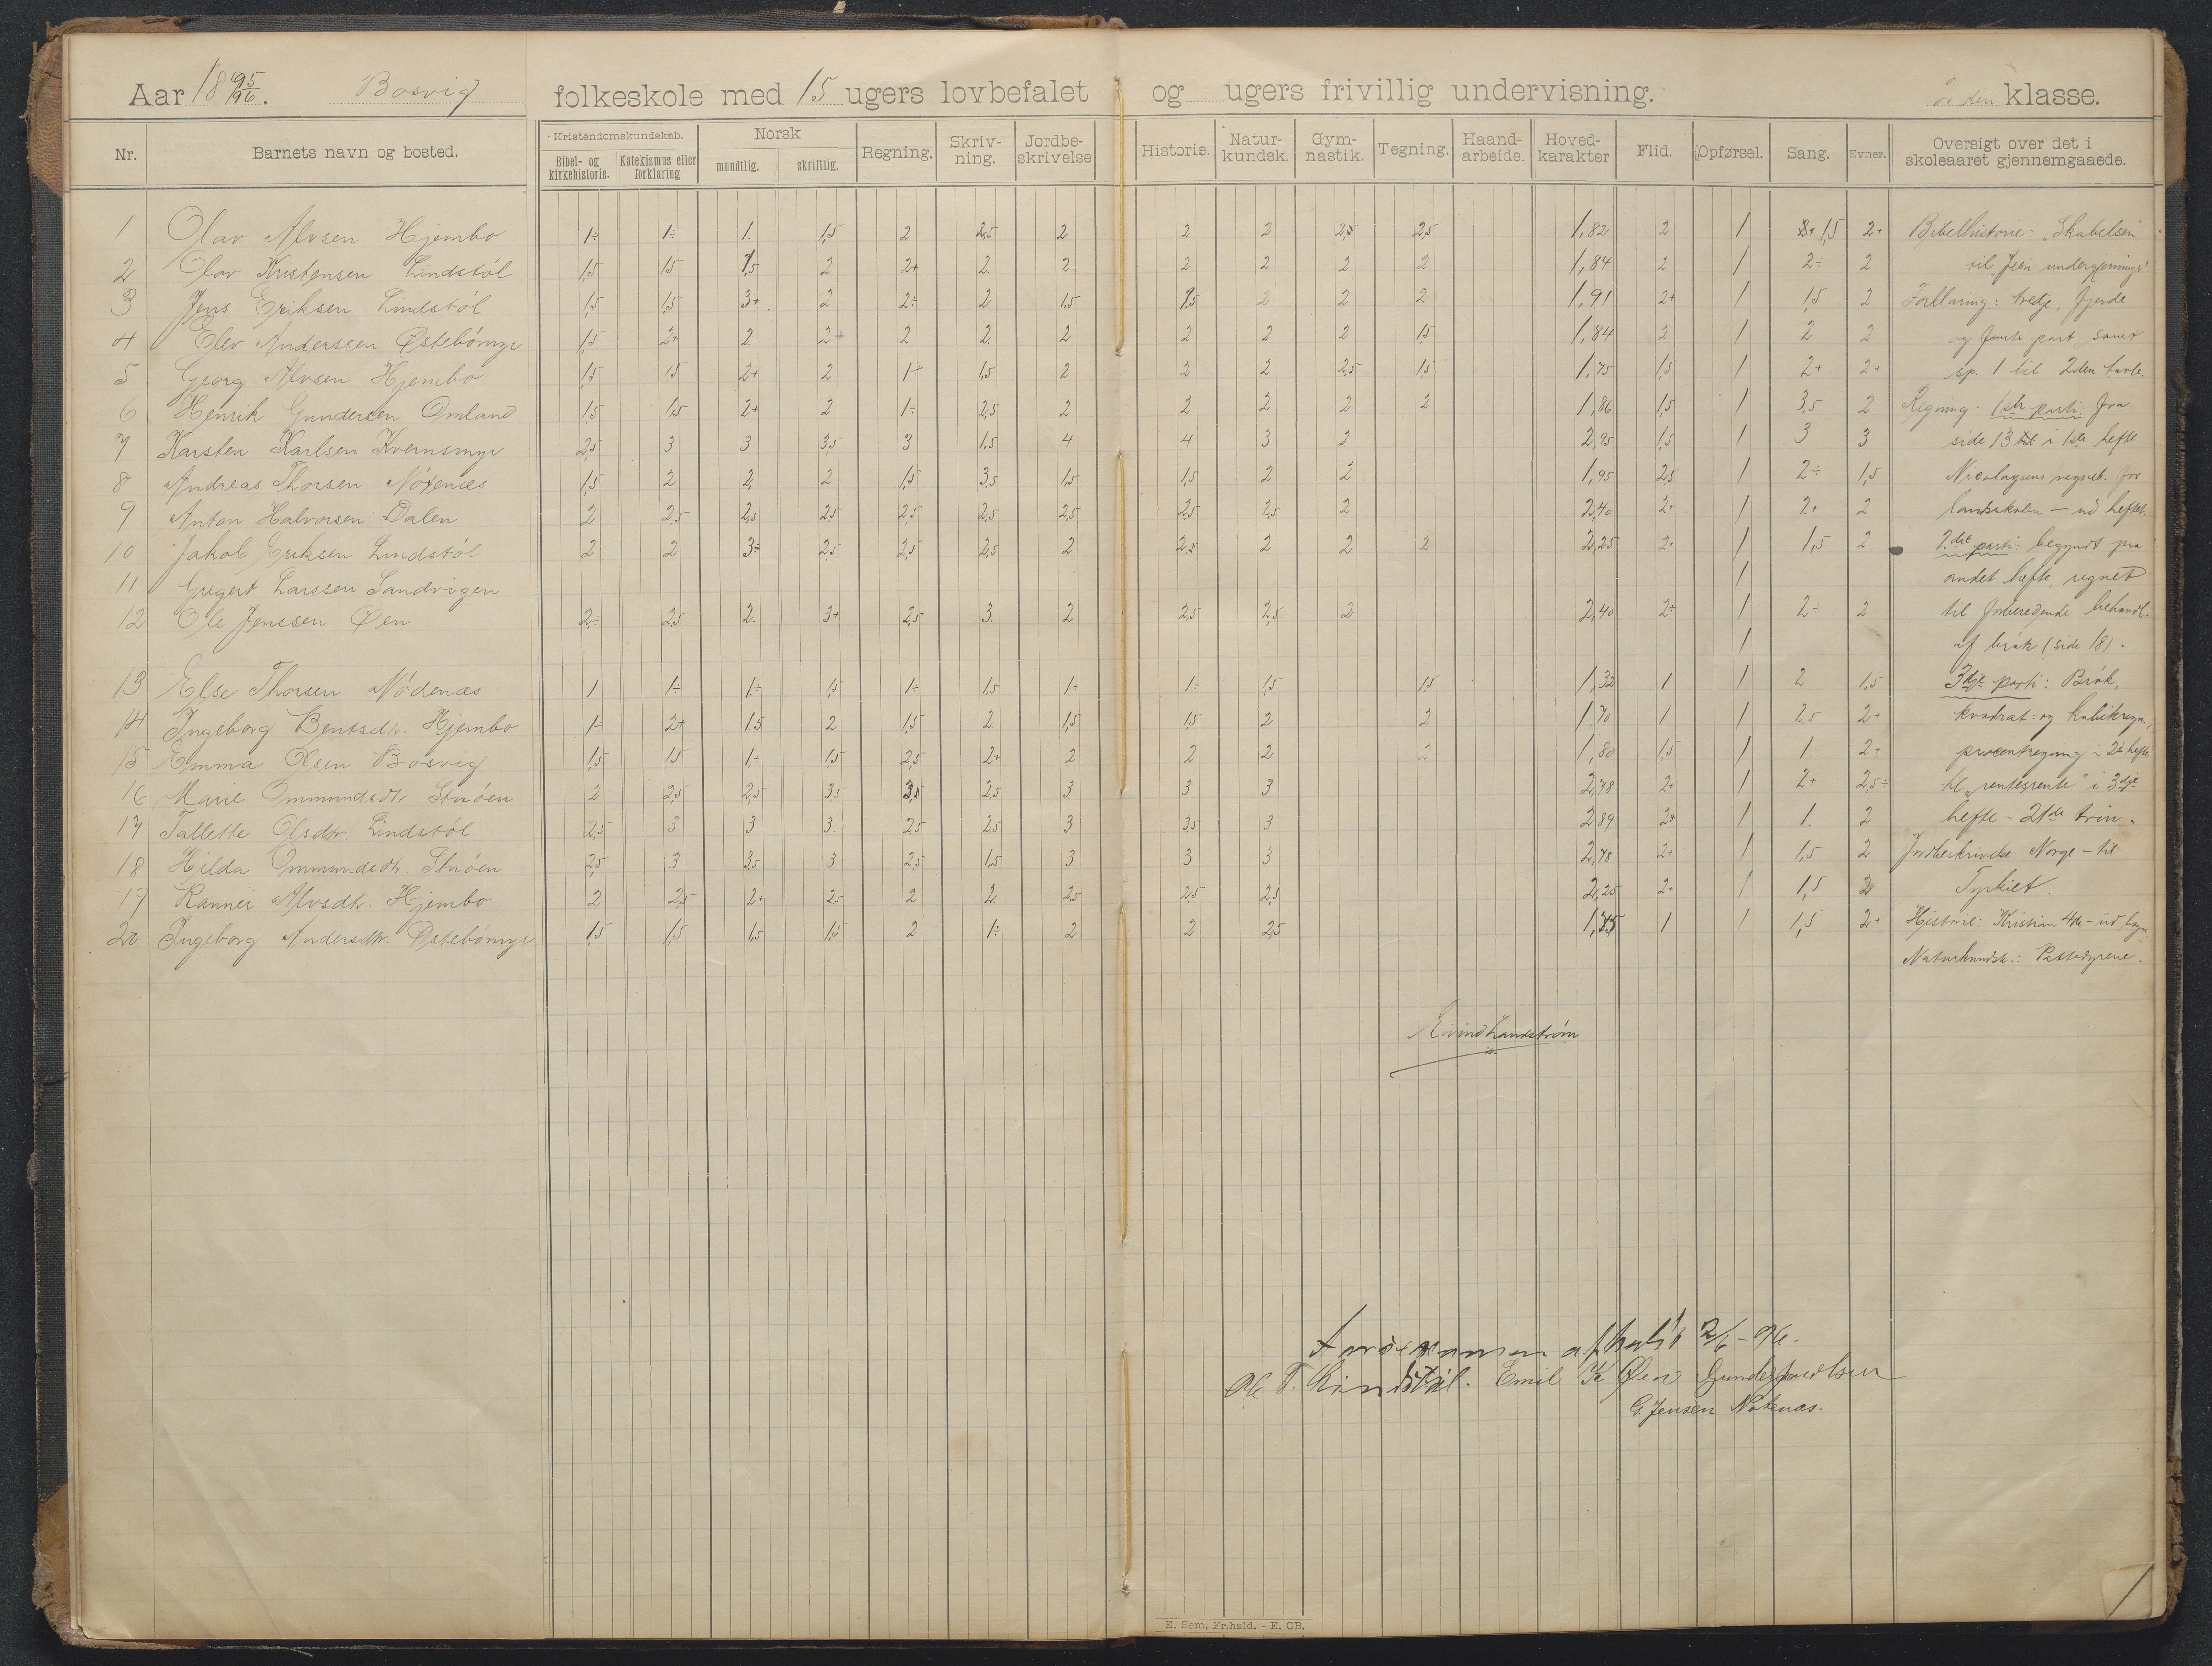 Aar 1895/96. Bosvig folkeskole med 15 ugers lovbefalet og ugers frivillig undervisning. klasse.
Nr. Barnets navn og bosted. Kristendomskundskab. Bibel- og kirkehistorie. Katekismus eller forklaring Norsk mundtlig. skriftlig. Regning. Skriv-ning. Jordbe-skrivelse Historie. Natur-kundsk. Gym-nastik. Tegning. Haand-arbeide. Hoved-karakter Flid. Opførsel. Sang. Evner. Oversigt over det i skoleaaret gjennemgaaede.
1 Olav Alvsen Hjembo 1÷ 1÷ 1. 1,5 2 2,5 2 2 2 2,5 2,5 1,82 2 1 1,5 2+ Bibelhistorie: "Skabelsen"
2 Olav Kristensen Lindstöl 1,5 1,5 1,5 2 2+ 2. 2 2 2 2 2 1,84 2 1 2÷ 2 til "Jesu undergjerninger".
3 Jens Eriksen Lindstöl 1,5 1,5 3+ 2 2÷ 2. 1,5 1,5 2 2 2 1,91 2+ 1 1,5 2 Forklaring: tredje, fjerde
4 Elev Anderssen Østebömyr 1,5 2+ 2. 2+ 2 2. 2 2 2 2 1,5 1,84 2 1 2 2 og femte part, samt
5 Georg Alvsen Hjembo 1,5 1,5 2+ 2 1÷ 1,5 2 2 2 2,5 1,5 1,75 1,5 1 2+ 2+ sp. 1 til 2den tavle.
6 Henrik Gundersen Omland 1,5 1,5 2+ 2 1÷ 2,5 2 2 2 2 2 1,86 1,5 1 3,5 2 Regning: 1ste parti: fra
7 Karsten Karlsen Kvernsmyr 2,5 3 3 3,5 3 1,5 4 4 3 2 2,95 1,5 1 3 3 side 13 i 1ste hefte
8 Andreas Thorsen Nötenæs 1,5 2 2. 2 1,5 3,5 1,5 1,5 2 2 1,95 2,5 1 2÷ 1,5 Nicolaysens regneb. for
9 Anton Halvorsen Dalen 2 2,5 2,5 2,5 2,5 2,5 2,5 2,5 2,5 2 2,40 2+ 1 2+ 2 landsskolen – ud heftet.
10 Jakob Eriksen Lindstöl 2 2 3÷ 2,5 2,5 2,5 2 2,5 2 2 2 2,25 2+ 1 1,5 2 2det parti: begyndt paa
11 Gregert Larssen Sandvigen 1 andet hefte, regnet
12 Ole Jenssen Øen 2÷ 2,5 2. 3+ 2,5 3. 2 2,5 2,5 2 2,40 2÷ 1 2÷ 2 til forberedende behandl.
1 af brök (side 18).
13 Else Thorsen Nödenæs 1 1÷ 1÷ 1,5 1÷ 1,5 1÷ 1÷ 1,5 1,5 1,32 1 1 2 1,5 3dje parti: Brök,
14 Ingeborg Bentsdtr. Hjembo 1÷ 2+ 1,5 2 1,5 2 1,5 1,5 2 2 1,70 1 1 2,5 2+ kvadrat- og kubikregn.,
15 Emma Olsen Bosvig 1,5 1,5 1,÷ 1,5 2,5 2+ 2 2 2 2 1,80 1,5 1 1. 2+ procentregning i 2det hefte
16 Marie Ommundsdtr. Stuöen 2 2,5 2,5 3,5 3,5 2,5 3 3 3 2,78 2+ 1 2+ 2,5÷ til "rentesrente" i 3dje
17 Tallette Olsdtr. Lindstöl 2,5 3 3 3. 2,5 2,5 3 3,5 3 2,89 2+ 1 1. 2 hefte – 21de trin.
18 Hilda Ommundsdtr. Stuöen 2,5 3 3,5 3 2,5 1,5 3 3 3 2,78 2+ 1 1,5 2 Jordbeskrivelse: Norge – til
19 Rannei Alvsdtr. Hjembo 2 2,5 2+ 2,5 2 2. 2,5 2,5 2,5 2,25 2+ 1 1,5 2 Tyrkiet.
20 Ingeborg Andersdtr. Østebömyr 1,5 1,5 1,5 1,5 2 1÷ 2 2 2,5 1,75 1 1 1,5 2+ Historie: Kristian 4de – ud bogen
Naturkundsk.: Pattedyrene.
Eivind Landström
afholdt 2/6 – 96.
Ole T. Lindstöl. Emil K. Øen
G. Jensen Nötenæs.
E. Sem, Fr.hald. - E. CB.